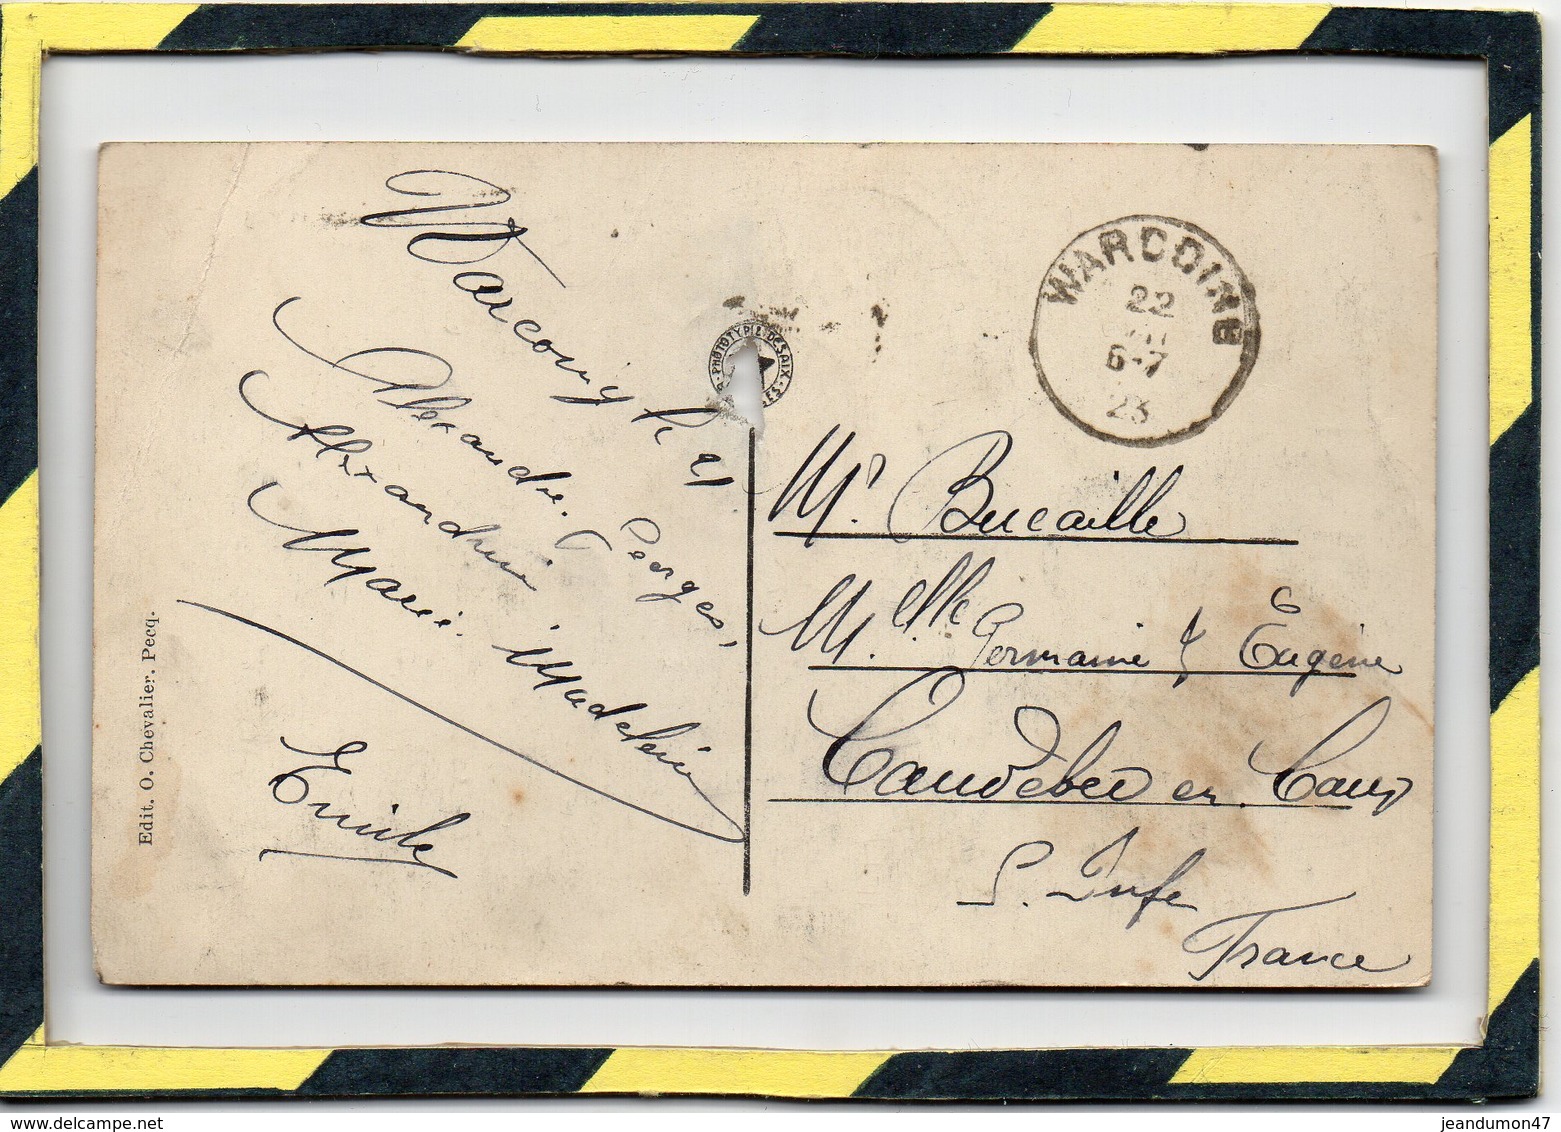 Warcoing le 21
Alexandre. Georges,
Alexandrine
Marie. Madeleine
Emile
Edit. O. Chevalier, Pecq.
PHOTOTYPIE DESAIX
WARCOING
22
6-7
23
Mr. Bucaille
Melle Germaine & Eugène
Caudebec en Caux
S. Infe
France
delcampe.net
jeandumon47